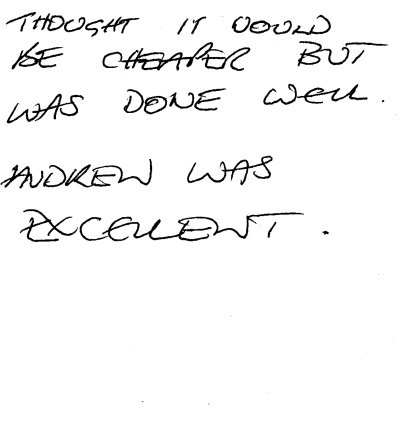 THOUGHT IT WOULD
BE CHEAPER BUT
WAS DONE WELL.
ANDREW WAS
EXCELLENT.